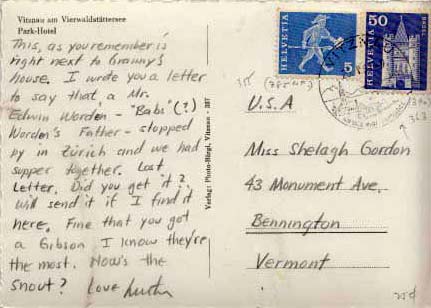 Vitznau am Vierwaldstättersee
Park-Hotel
This, as you remember is
right next to Granny's
house. I wrote you a letter
to say that a Mr.
Edwin Worden - "Babs" (?)
Worden's Father - stopped
by in Zürich and we had
supper together. Lost
Letter. Did you get it?
Will send it if I find it
here. Fine that you got
a Gibson I know they're
the most. How's the
snout? Love
Verlag: Photo-Bürgi, Vitznau - 207
HELVETIA
5
HELVETIA
50
BASEL
VITZNAU
355
363
U.S.A
Miss Shelagh Gordon
43 Monument Ave,
Bennington
Vermont
25¢